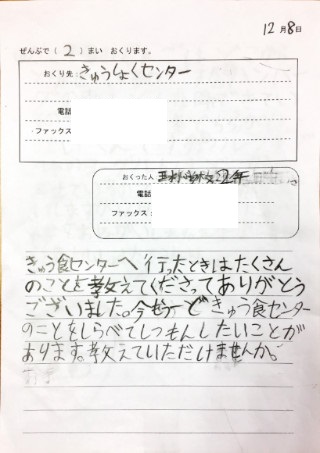 12月8日
ぜんぶで( 2 )まい おくります。
おくり先：きゅうしょくセンター
電話
ファックス
おくった人 2年
電話
ファックス：
きゅう食センターへ行ったときはたくさん
のことを教えてくださってありがとう
ございました。今もう一どきゅう食センター
のことをしらべてしつもんしたいことが
あります。教えていただけませんか。